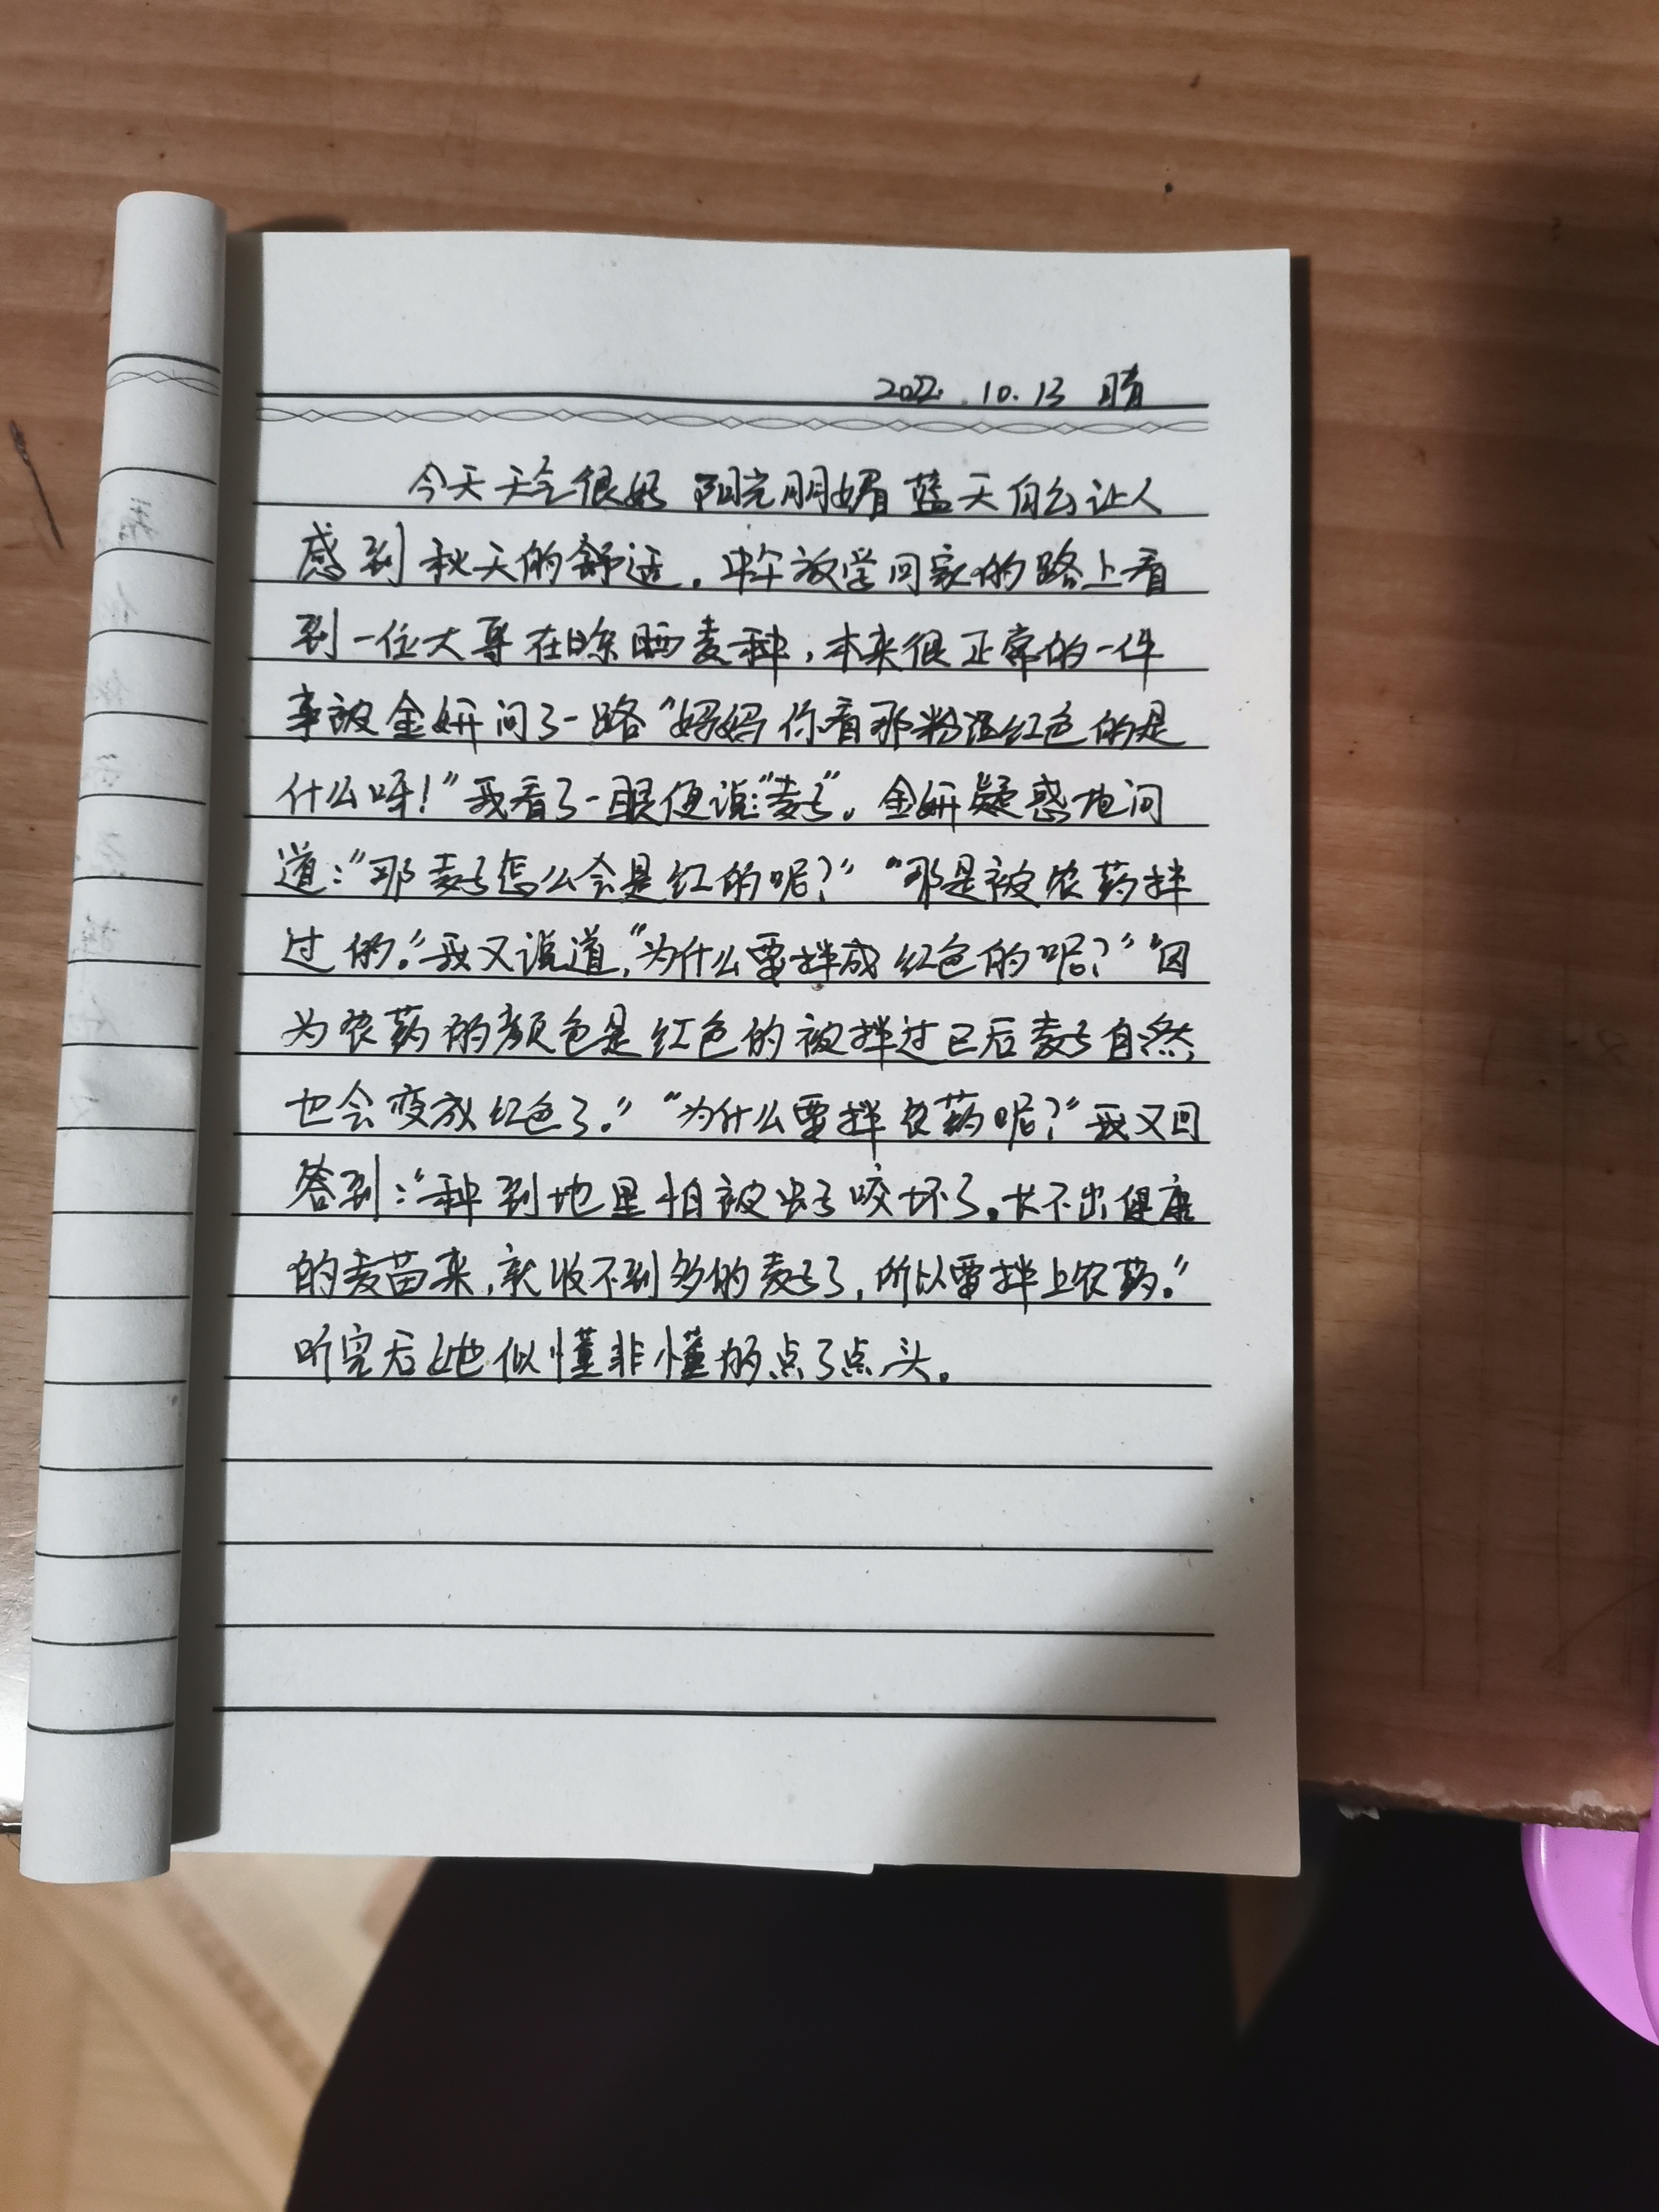 2022.10.13 晴
今天天气很好 阳光明媚 蓝天白云让人
感到秋天的舒适。中午放学回家的路上看
到一位大哥在晾晒麦种,本来很正常的一件
事被金妍问了一路“妈妈你看那粉红色的是
什么呀!”我看了一眼便说:“麦子”。金妍疑惑地问
道:“那麦子怎么会是红的呢?”“那是被农药拌
过的。”我又说道,“为什么要拌成红色的呢?”“因
为农药的颜色是红色的被拌过已后麦子自然
也会变成红色了。”“为什么要拌农药呢?”我又回
答到:“种到地里怕被虫子咬坏了。长不出健康
的麦苗来,就收不到多的麦子了,所以要拌上农药。”
听完后她似懂非懂的点了点头。